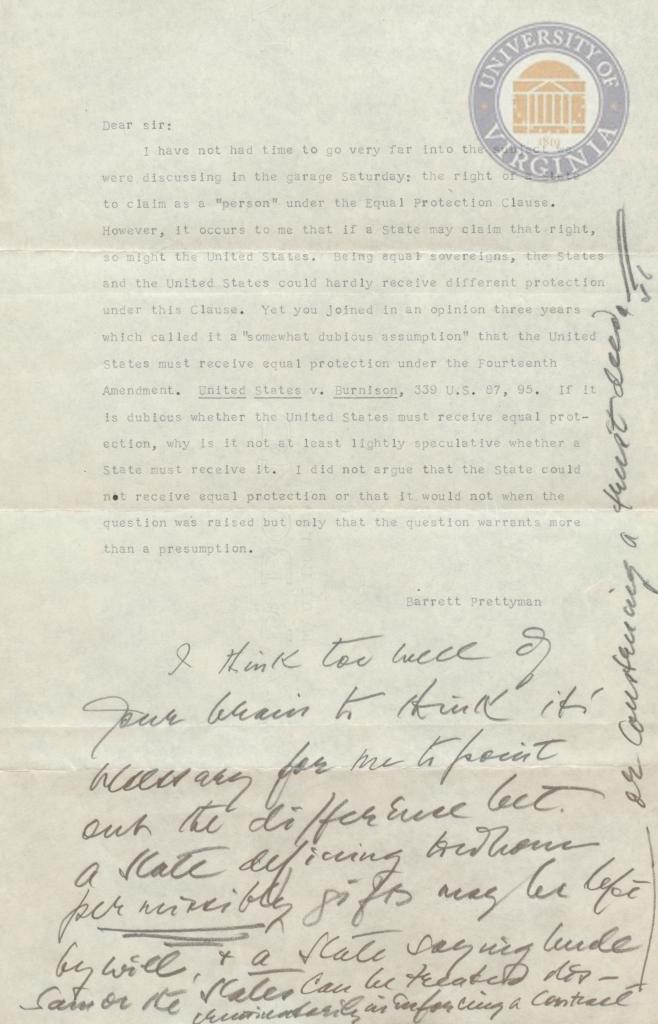 UNIVERSITY OF VIRGINIA
1819
Dear sir:
I have not had time to go very far into the subject we
were discussing in the garage Saturday: the right of a State
to claim as a "person" under the Equal Protection Clause.
However, it occurs to me that if a State may claim that right,
so might the United States. Being equal sovereigns, the States
and the United States could hardly receive different protection
under this Clause. Yet you joined in an opinion three years
which called it a "somewhat dubious assumption" that the United
States must receive equal protection under the Fourteenth
Amendment. United States v. Burnison, 339 U.S. 87, 95. If it
is dubious whether the United States must receive equal prot-
ection, why is it not at least lightly speculative whether a
State must receive it. I did not argue that the State could
not receive equal protection or that it would not when the
question was raised but only that the question warrants more
than a presumption.
Barrett Prettyman
I think too well of
your brain to think it's
necessary for me to point
out the difference bet.
a State defining to whom
permissibly gifts may be left
by will, & a State saying Uncle
Sam or the States can be treated dis-
criminatorily in enforcing a contract
or construing a trust deed.